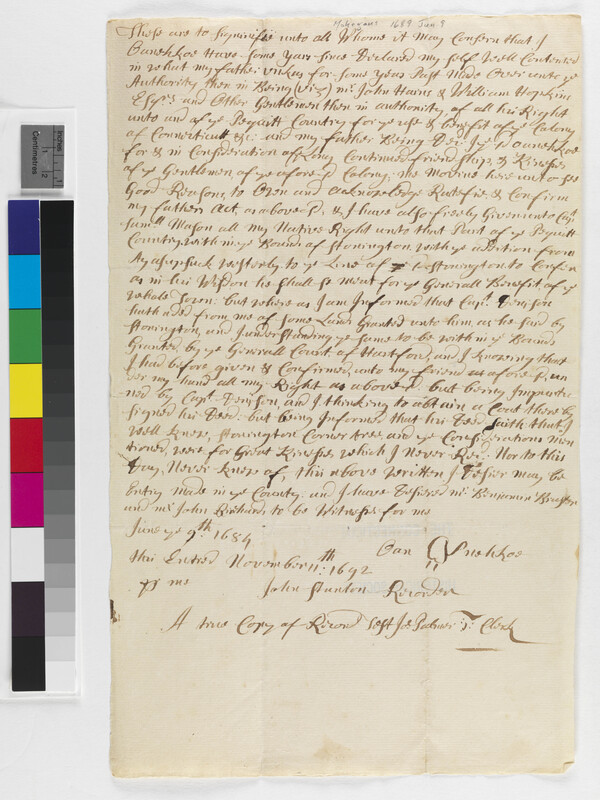 Mohegans 1684 Jun. 9
These are to signifie unto all Whome it May Consern that I
Oanehkoe Have some Years since Declared my self Well Contented
in what my father Unkas for some Years Past Made Over unto ye
Authority then in Being (viz) mr. John Hains & William Hopkins
Esqrs and Other Gentlemen then in authority, of all his Right
unto and of ye Pequitt Country for ye use & benefit of ye Colony
of Connecticutt &c: and my father Being
for & in Consideration of Long Continued friendship & Kindness
of ye Gentlemen of ye afores'd Colony, Me Moveing here unto & for
Good Reasons, to Own and acknowledge Ratefie & Confirm
my fathers Act, as above s'd, & I have also freely Given unto Capt.
Samll Mason all my Natives Right unto that Part of ye Pequitt
Country within ye Bounds of Stonington, with ye addition from
Westerly to ye Line of sd Stonington to Confirm
as in his Wisdon he shall se Meat for ye Generall Benefit of ye
Whole Town: but where as I am Informed that Capt. Denison
hath a ded from me of some Lands Granted unto him, as he said by
Stonington, and I understanding ye same to be with in ye Bounds
Granted by ye Generall Court of Hartford, and I Knowing that
I had before given & Confirmed, unto my friend as afore s'd, un
der my hand all my Right as above s'd but being Importu
ned by Capt. Denison, and I thinking to obtain a Coat thereby
signed his Deed: but being Informed that his Deed saith that I
Well Knew, Stonington Corner tree, and ye Considerations Men
tioned, were for Great Kindness, which I Never Red: Nor to this
Day, Never Knew of, this above written I Desier may be
Entry Made in ye County, and I have Desiered mr. Benjamin Brewster
and mr John Richards to be Witness for me
June ye 9th: 1684
Oan nehkoe
this Entred November 11th: 1692
pr me John Stanton Recorder
A true Copy of Record Test Jos Palmer Clerk